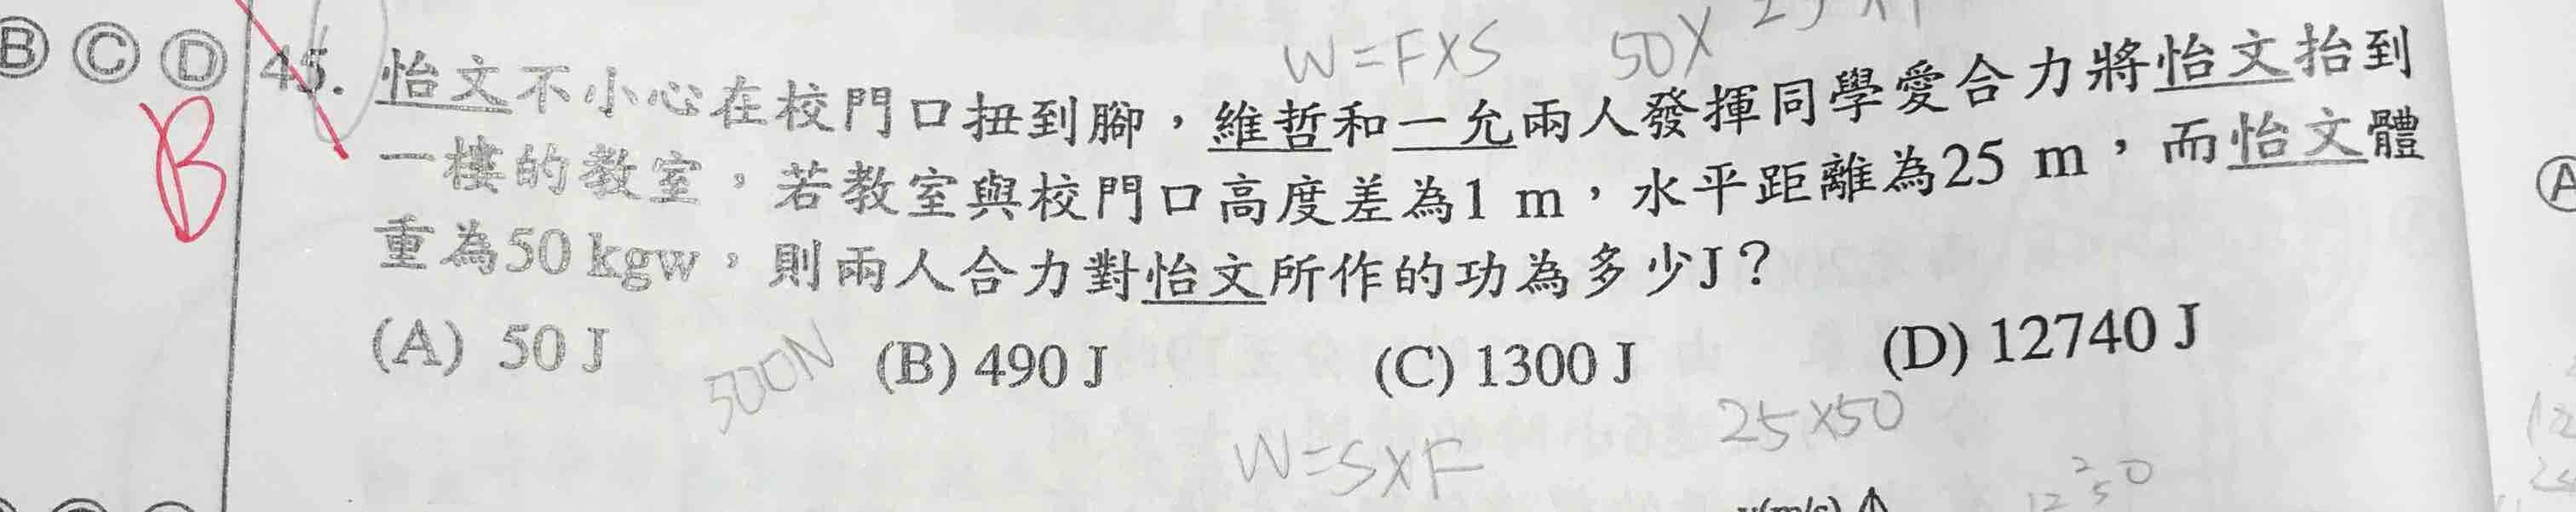 W=FXS 50X
B C D 45. 怡文不小心在校門口扭到腳，維哲和一允兩人發揮同學愛合力將怡文抬到
B 一樓的教室，若教室與校門口高度差為1 m，水平距離為25 m，而怡文體
重為50 kgw，則兩人合力對怡文所作的功為多少J？
(A) 50 J (B) 490 J (C) 1300 J (D) 12740 J
500N
25X50
W=SXF